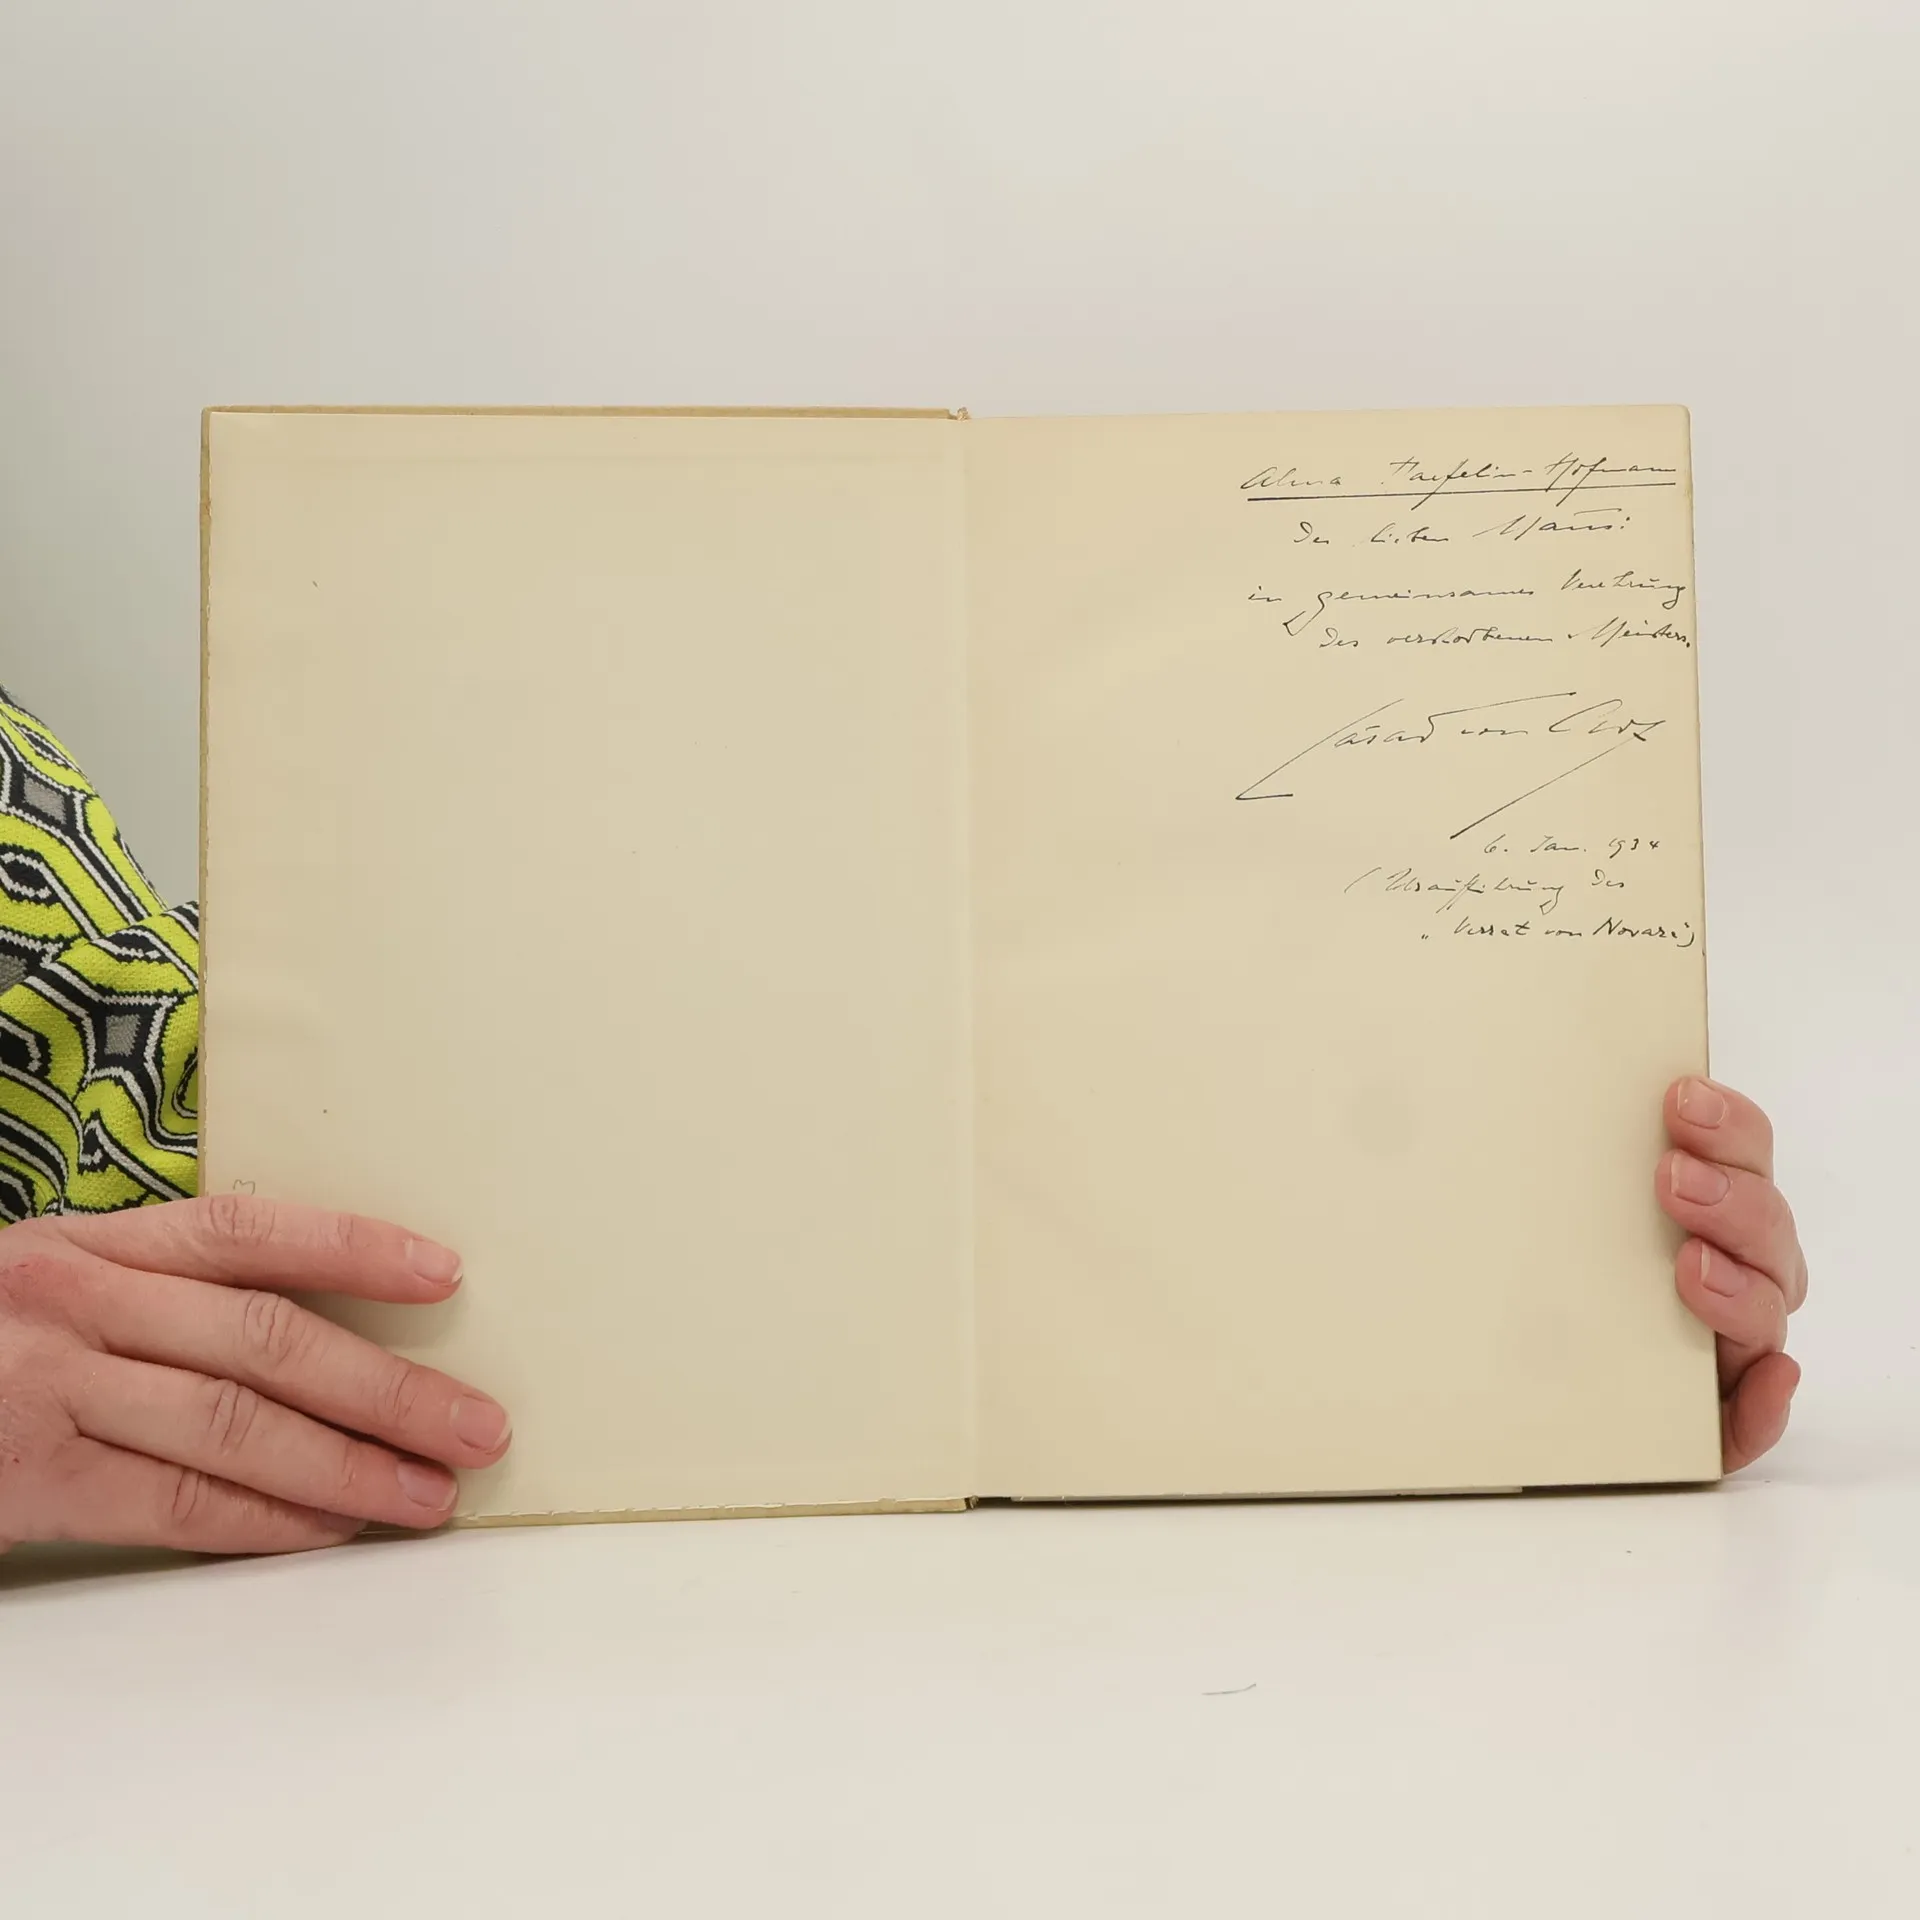 3
Alma Haefelin-Hofmann
Der lieben Maus:
in gemeinsamer Verehrung
des verstorbenen Meisters.
Cäsar von Arx
6. Jan. 1934
(Uraufführung des
„Verrat von Novara“)